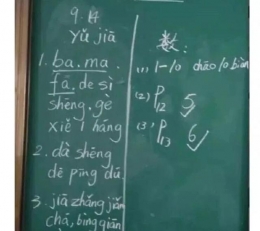 9.14
Yǔ jiā
1. ba.ma.
fā.de sì
shēng.gè
xiě 1 háng
2. dà shēng
dē pīng dú
3. jiā zhǎng jiǎn
chá, bìng qiān
数:
(1) 1-10 chāo 10 biàn
(2) P12 5 ✓
(3) P13 6 ✓